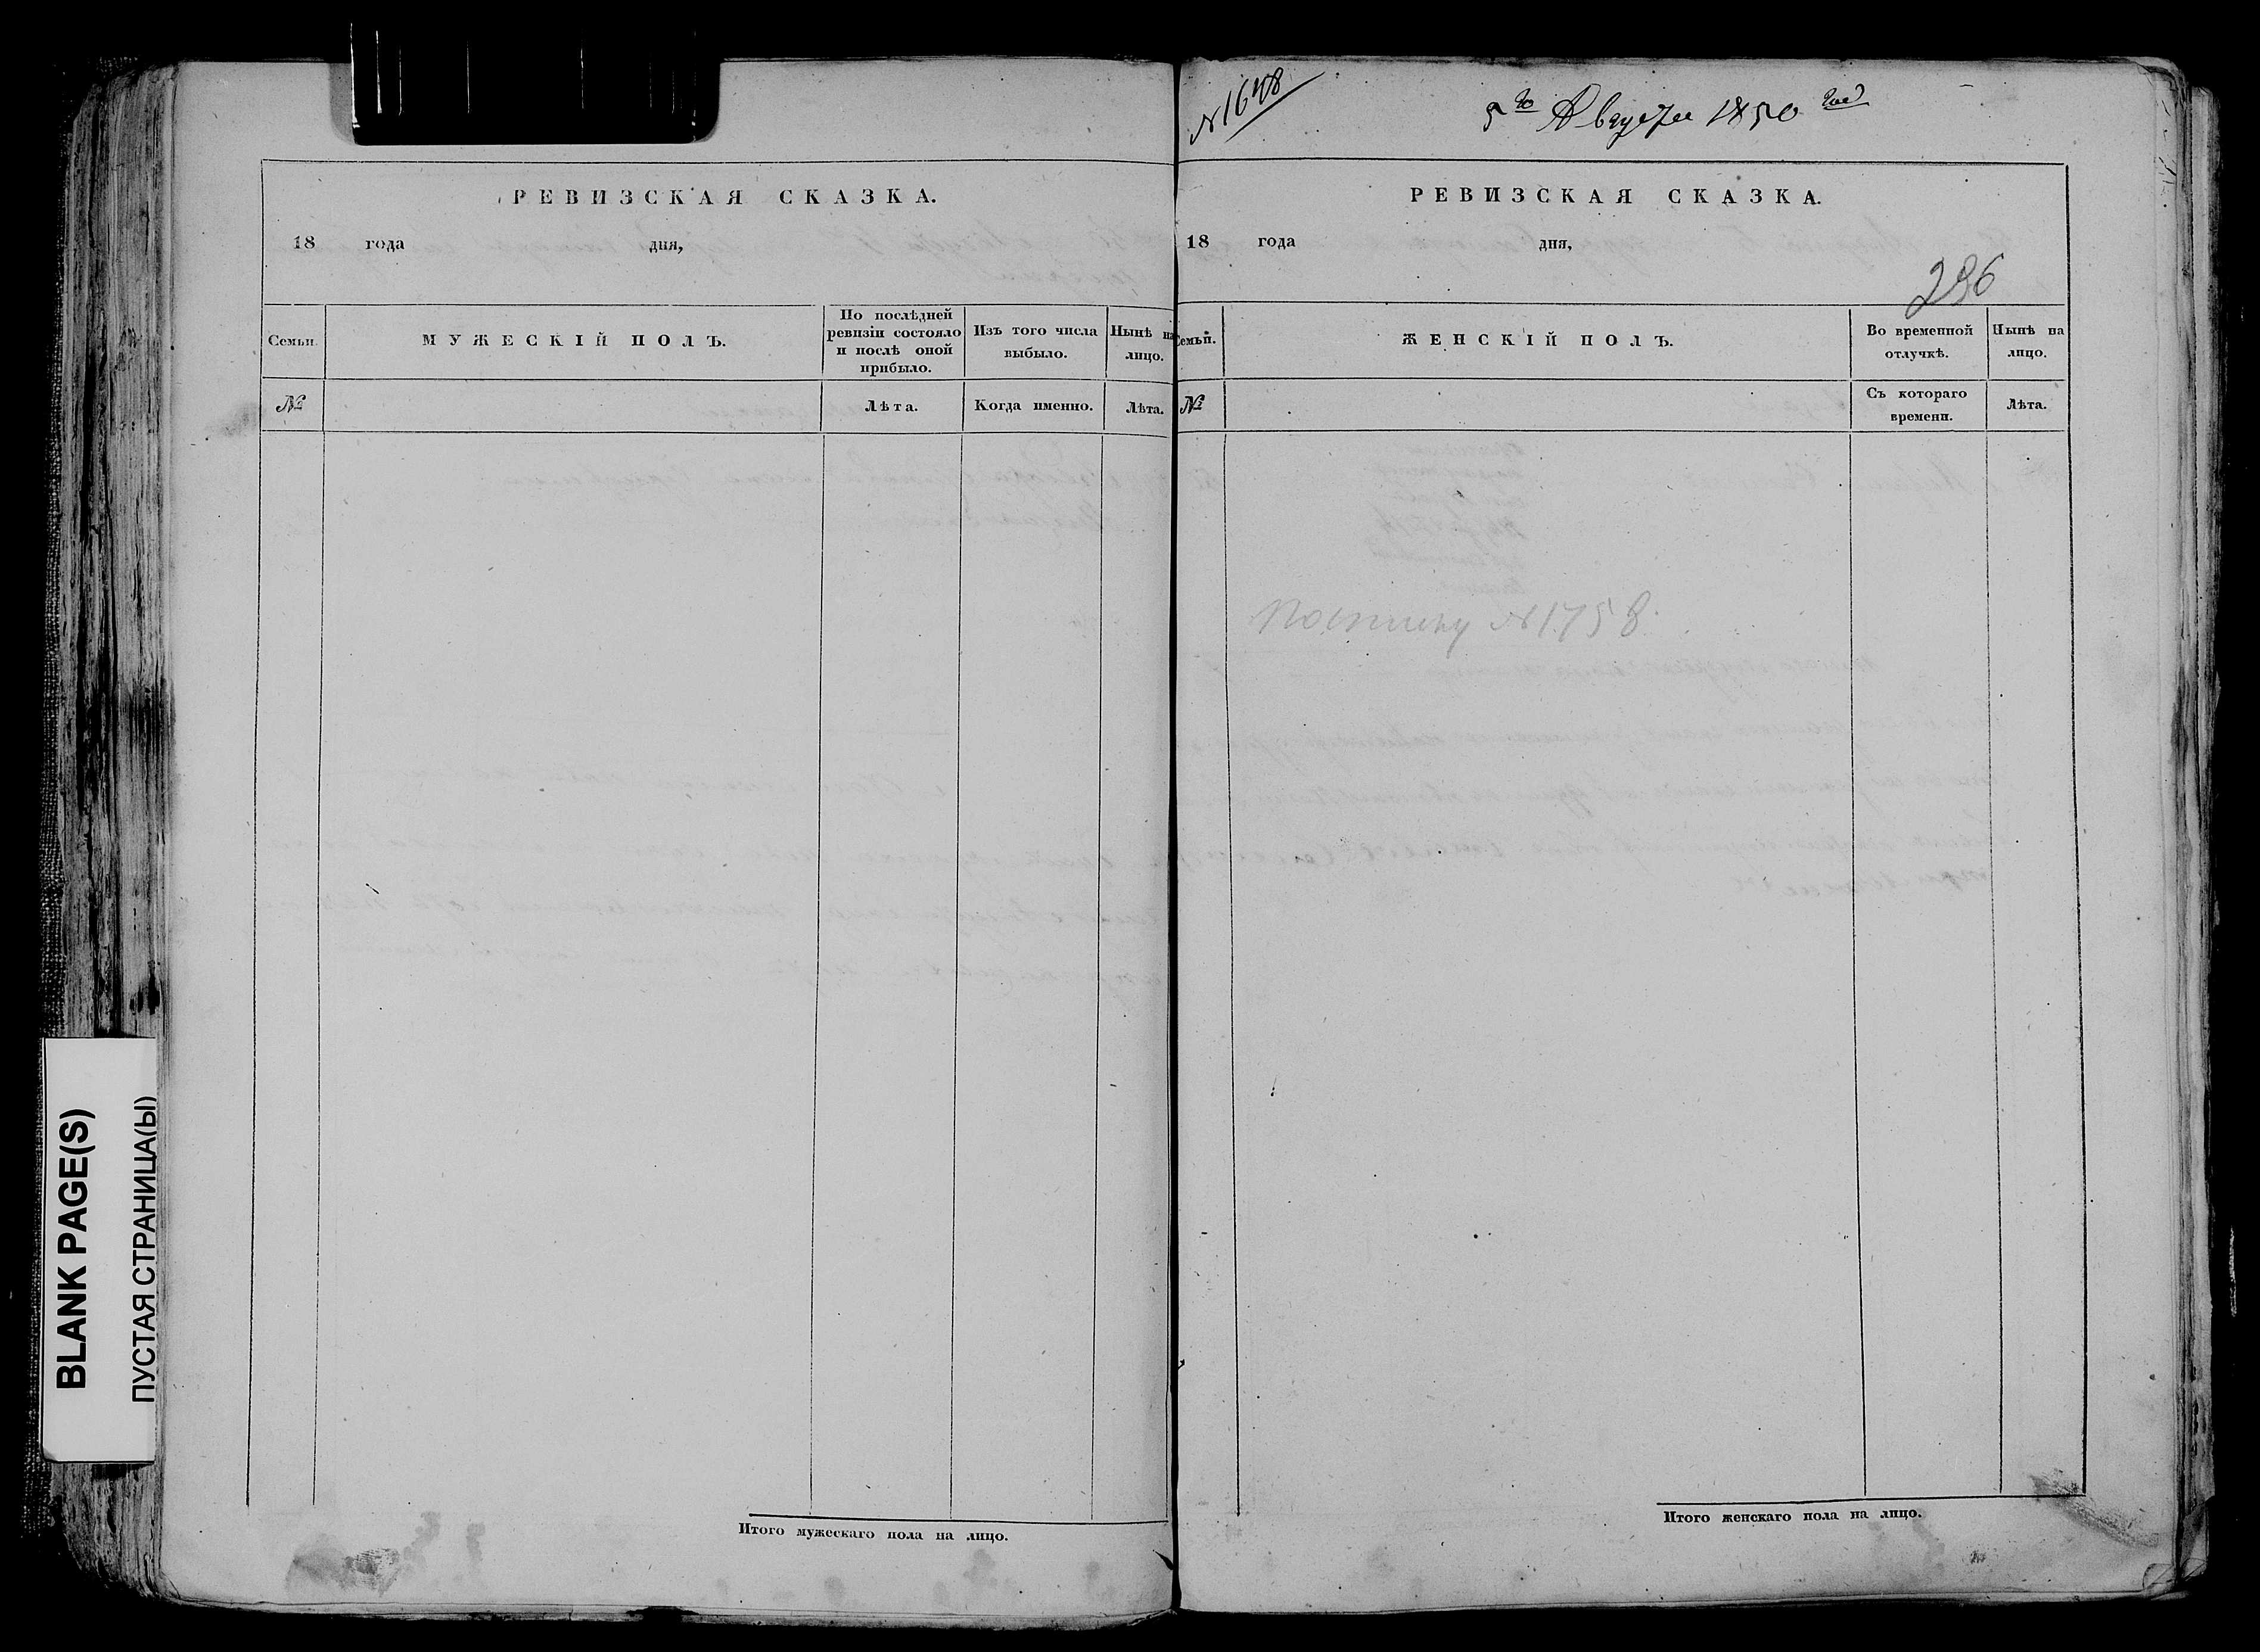 РЕВИЗСКАЯ СКАЗКА.
18 года дня,
Семьи.
МУЖЕСКІЙ ПОЛЪ.
По послѣдней
ревизіи состояло
и послѣ оной
прибыло.
Изъ того числа
выбыло.
Нынѣ на
лицо.
№
Лѣта.
Когда именно.
Лѣта.
Итого мужескаго пола на лицо.
N 1648
5го Августа 1850 год
РЕВИЗСКАЯ СКАЗКА.
18 года дня,
296
Семьи.
ЖЕНСКІЙ ПОЛЪ.
Во временной
отлучкѣ.
Нынѣ на
лицо.
№
Съ котораго
времени.
Лѣта.
N 1758
Итого женскаго пола на лицо.
BLANK PAGE(S)
ПУСТАЯ СТРАНИЦА(Ы)